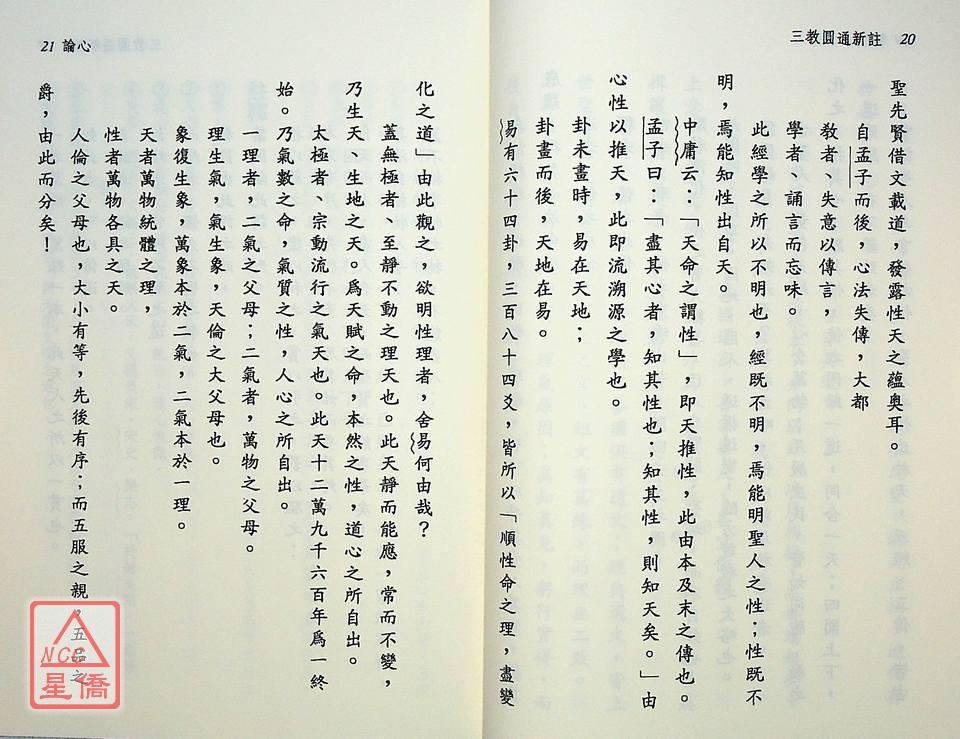 三教圓通新註 20
聖先賢借文載道，發露性天之蘊奧耳。
自孟子而後，心法失傳，大都
教者、失意以傳言，
學者、誦言而忘味。
此經學之所以不明也，經既不明，焉能明聖人之性；性既不
明，焉能知性出自天。
中庸云：「天命之謂性」，即天推性，此由本及末之傳也。
孟子曰：「盡其心者，知其性也；知其性，則知天矣。」由
心性以推天，此即流溯源之學也。
卦未畫時，易在天地；
卦畫而後，天地在易。
易有六十四卦，三百八十四爻，皆所以「順性命之理，盡變
21 論心
化之道」由此觀之，欲明性理者，舍易何由哉？
蓋無極者、至靜不動之理天也。此天靜而能應，常而不變，
乃生天、生地之天。爲天賦之命，本然之性，道心之所自出。
太極者、宗動流行之氣天也。此天十二萬九千六百年爲一終
始。乃氣數之命，氣質之性，人心之所自出。
一理者，二氣之父母；二氣者，萬物之父母。
理生氣，氣生象，天倫之大父母也。
象復生象，萬象本於二氣，二氣本於一理。
天者萬物統體之理，
性者萬物各具之天。
人倫之父母也，大小有等，先後有序；而五服之親，五品之
爵，由此而分矣！
NCC
星僑